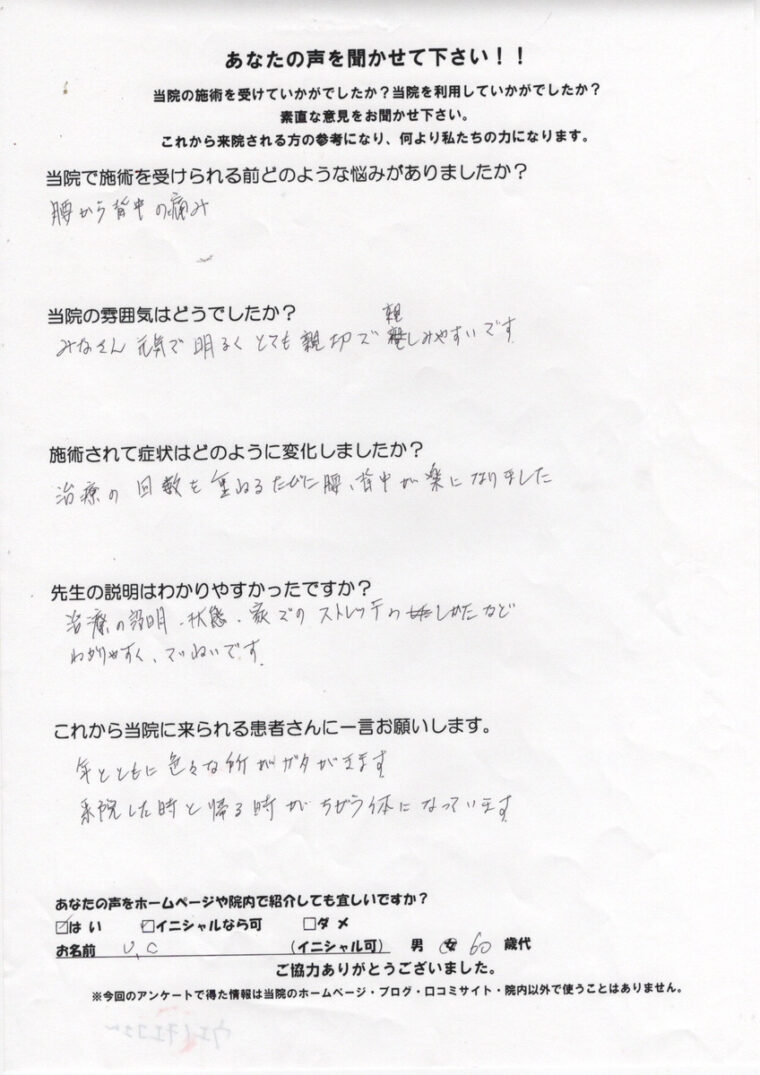 あなたの声を聞かせて下さい！！
当院の施術を受けていかがでしたか？当院を利用していかがでしたか？
素直な意見をお聞かせ下さい。
これから来院される方の参考になり、何より私たちの力になります。
当院で施術を受けられる前どのような悩みがありましたか？
腰から背中の痛み
当院の雰囲気はどうでしたか？
親
みなさん 元気で 明るく とても 親切で しみやすいです
施術されて症状はどのように変化しましたか？
治療の 回数を 重ねるたびに腰、背中が 楽に なりました
先生の説明はわかりやすかったですか？
治療の説明・状態・家での ストレッチの しかたなど
わかりやすく、ていねいです。
これから当院に来られる患者さんに一言お願いします。
年とともに 色々な所がガタがきます
来院した時と帰る時が ちがう体に なっています
あなたの声をホームページや院内で紹介しても宜しいですか？
☑はい ☑イニシャルなら可 □ダメ
お名前 U,C (イニシャル可) 男 女 60 歳代
ご協力ありがとうございました。
※今回のアンケートで得た情報は当院のホームページ・ブログ・口コミサイト・院内以外で使うことはありません。